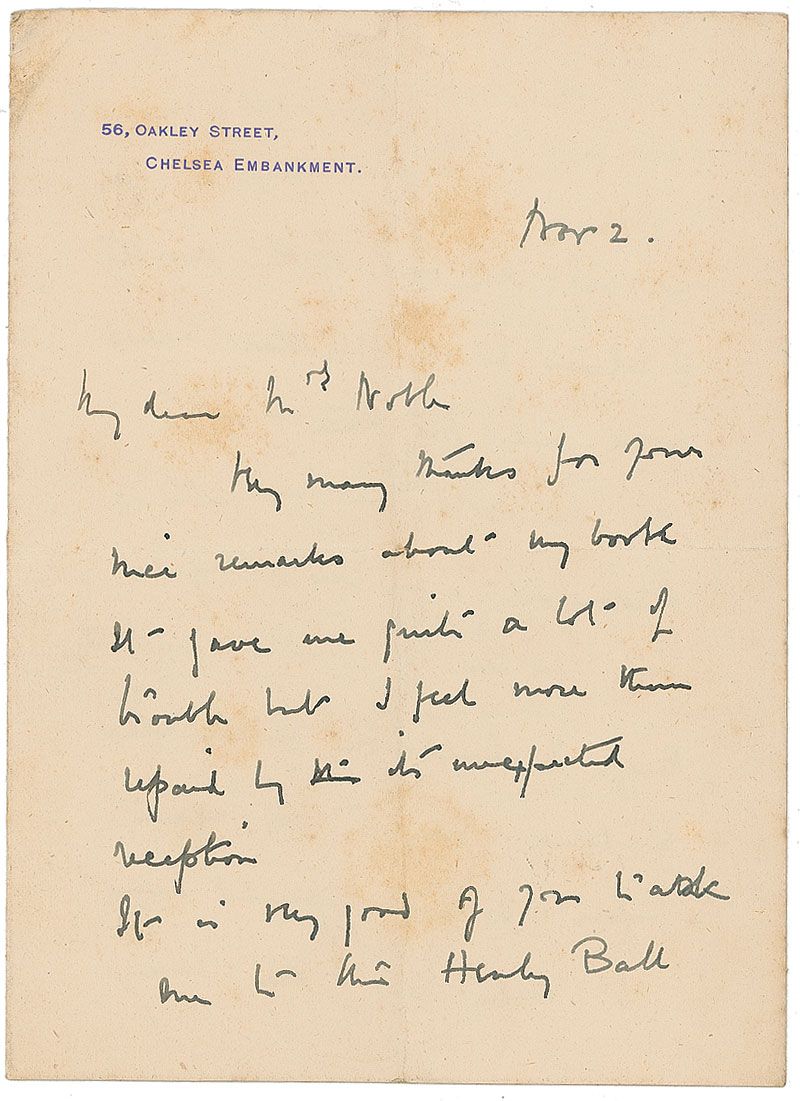 56, OAKLEY STREET,
CHELSEA EMBANKMENT.
Nov 2.
My dear Mrs Noble
Very many thanks for your
nice remarks about my book
It gave me quite a lot of
trouble but I feel more than
repaid by its unexpected
reception
It is very good of you to ask
me to the Henley Ball